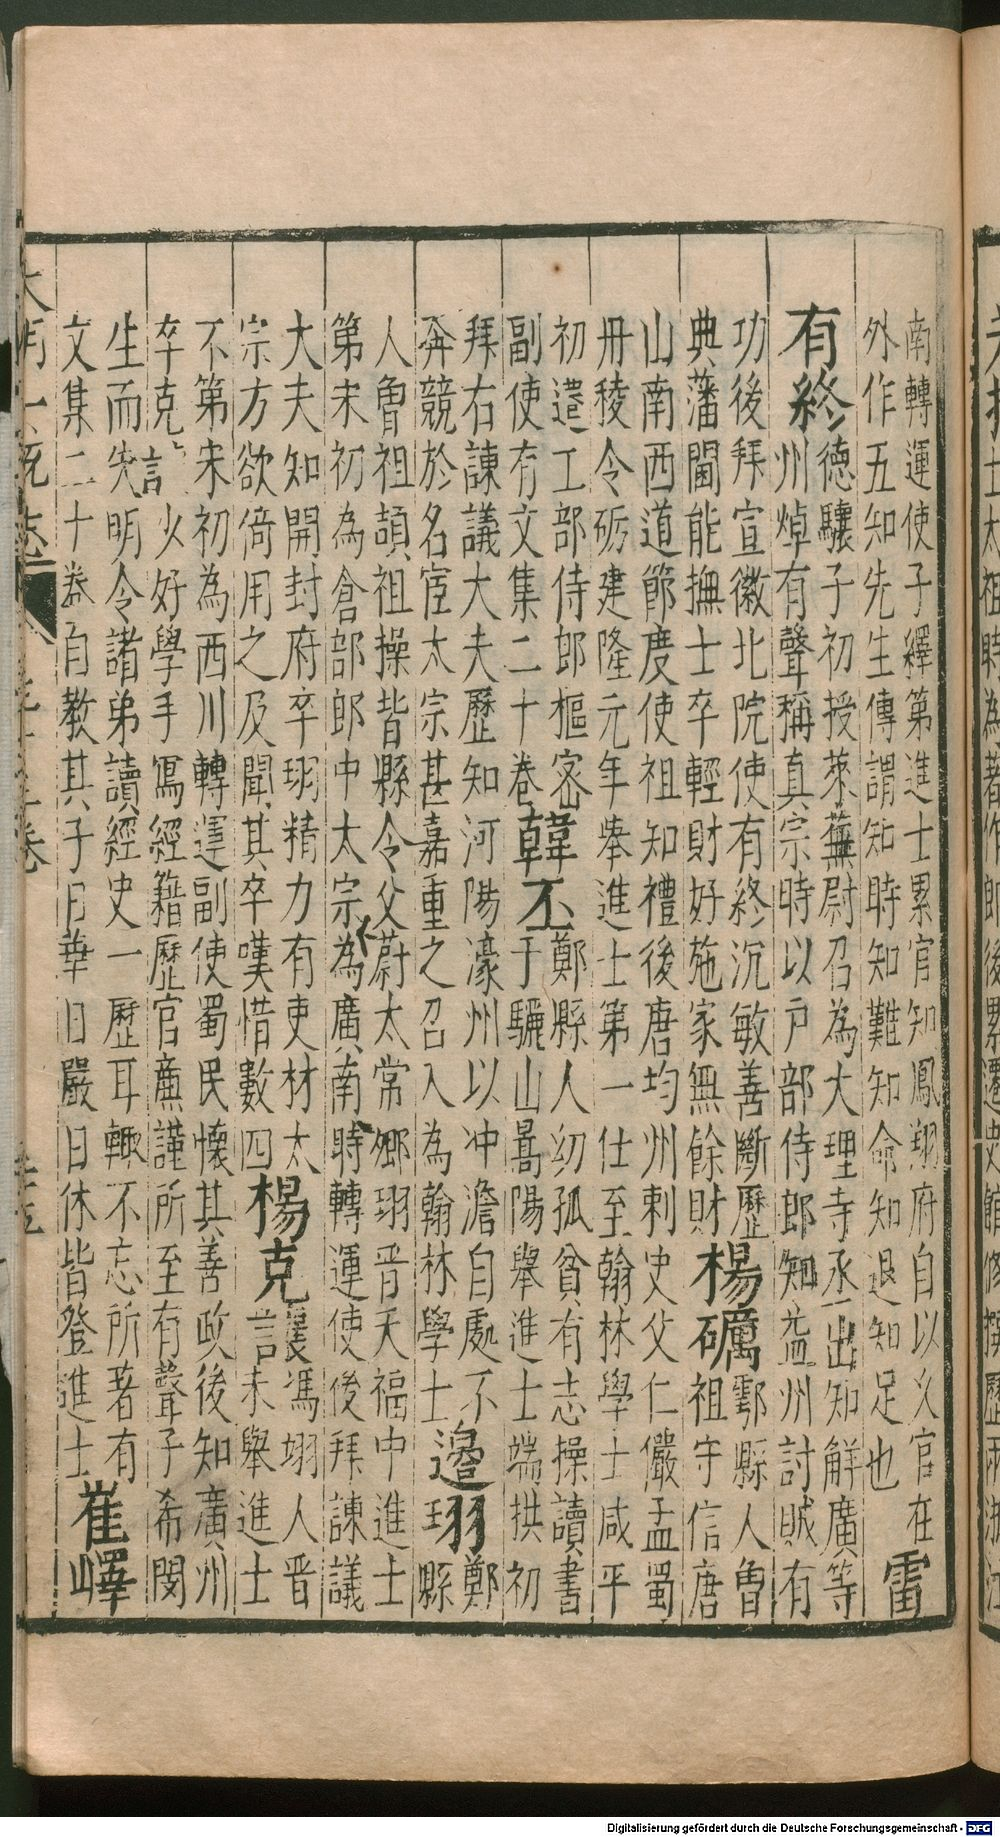 南轉運使子繹第進士累官知鳳翔府自以久官在
外作五知先生傳謂知時知難知命知退知足也
雷
有終
德驤子初授萊蕪尉召為大理寺丞出知解廣等
州焯有聲稱真宗時以戶部侍郎知益州討賊有
功後拜宣徽北院使有終沉敏善斷歷
典藩閫能撫士卒輕財好施家無餘財
楊礪
鄠縣人曾
祖守信唐
山南西道節度使祖知禮後唐均州刺史父仁儼孟蜀
丹稜令砺建隆元年舉進士第一仕至翰林學士咸平
初遷工部侍郎樞宻
副使有文集二十卷
韓丕
鄭縣人幼孤貧有志操讀書
于驪山暠陽舉進士端拱初
拜右諫議大夫歷知河陽濠州以冲澹自處不
奔競於名宦太宗甚嘉重之召入為翰林學士
邉珝
鄭
縣
人曾祖頡祖操皆縣令父蔚太常卿珝晋天福中進士
第宋初為倉部郎中太宗為廣南時轉運使後拜諫議
大夫知開封府卒珝精力有吏材太
宗方欲倚用之及聞其卒嘆惜數四
楊克讓
馮翊人晋
末舉進士
不第宋初為西川轉運副使蜀民懷其善政後知廣州
卒克少好學手寫經籍歷官亷謹所至有聲子希閔
生而失明令諸弟讀經史一歷耳輙不忘所著有
文集二十卷自教其子日華日嚴日休皆登進士
崔嶧
大明一統志
Digitalisierung gefördert durch die Deutsche Forschungsgemeinschaft - DFG